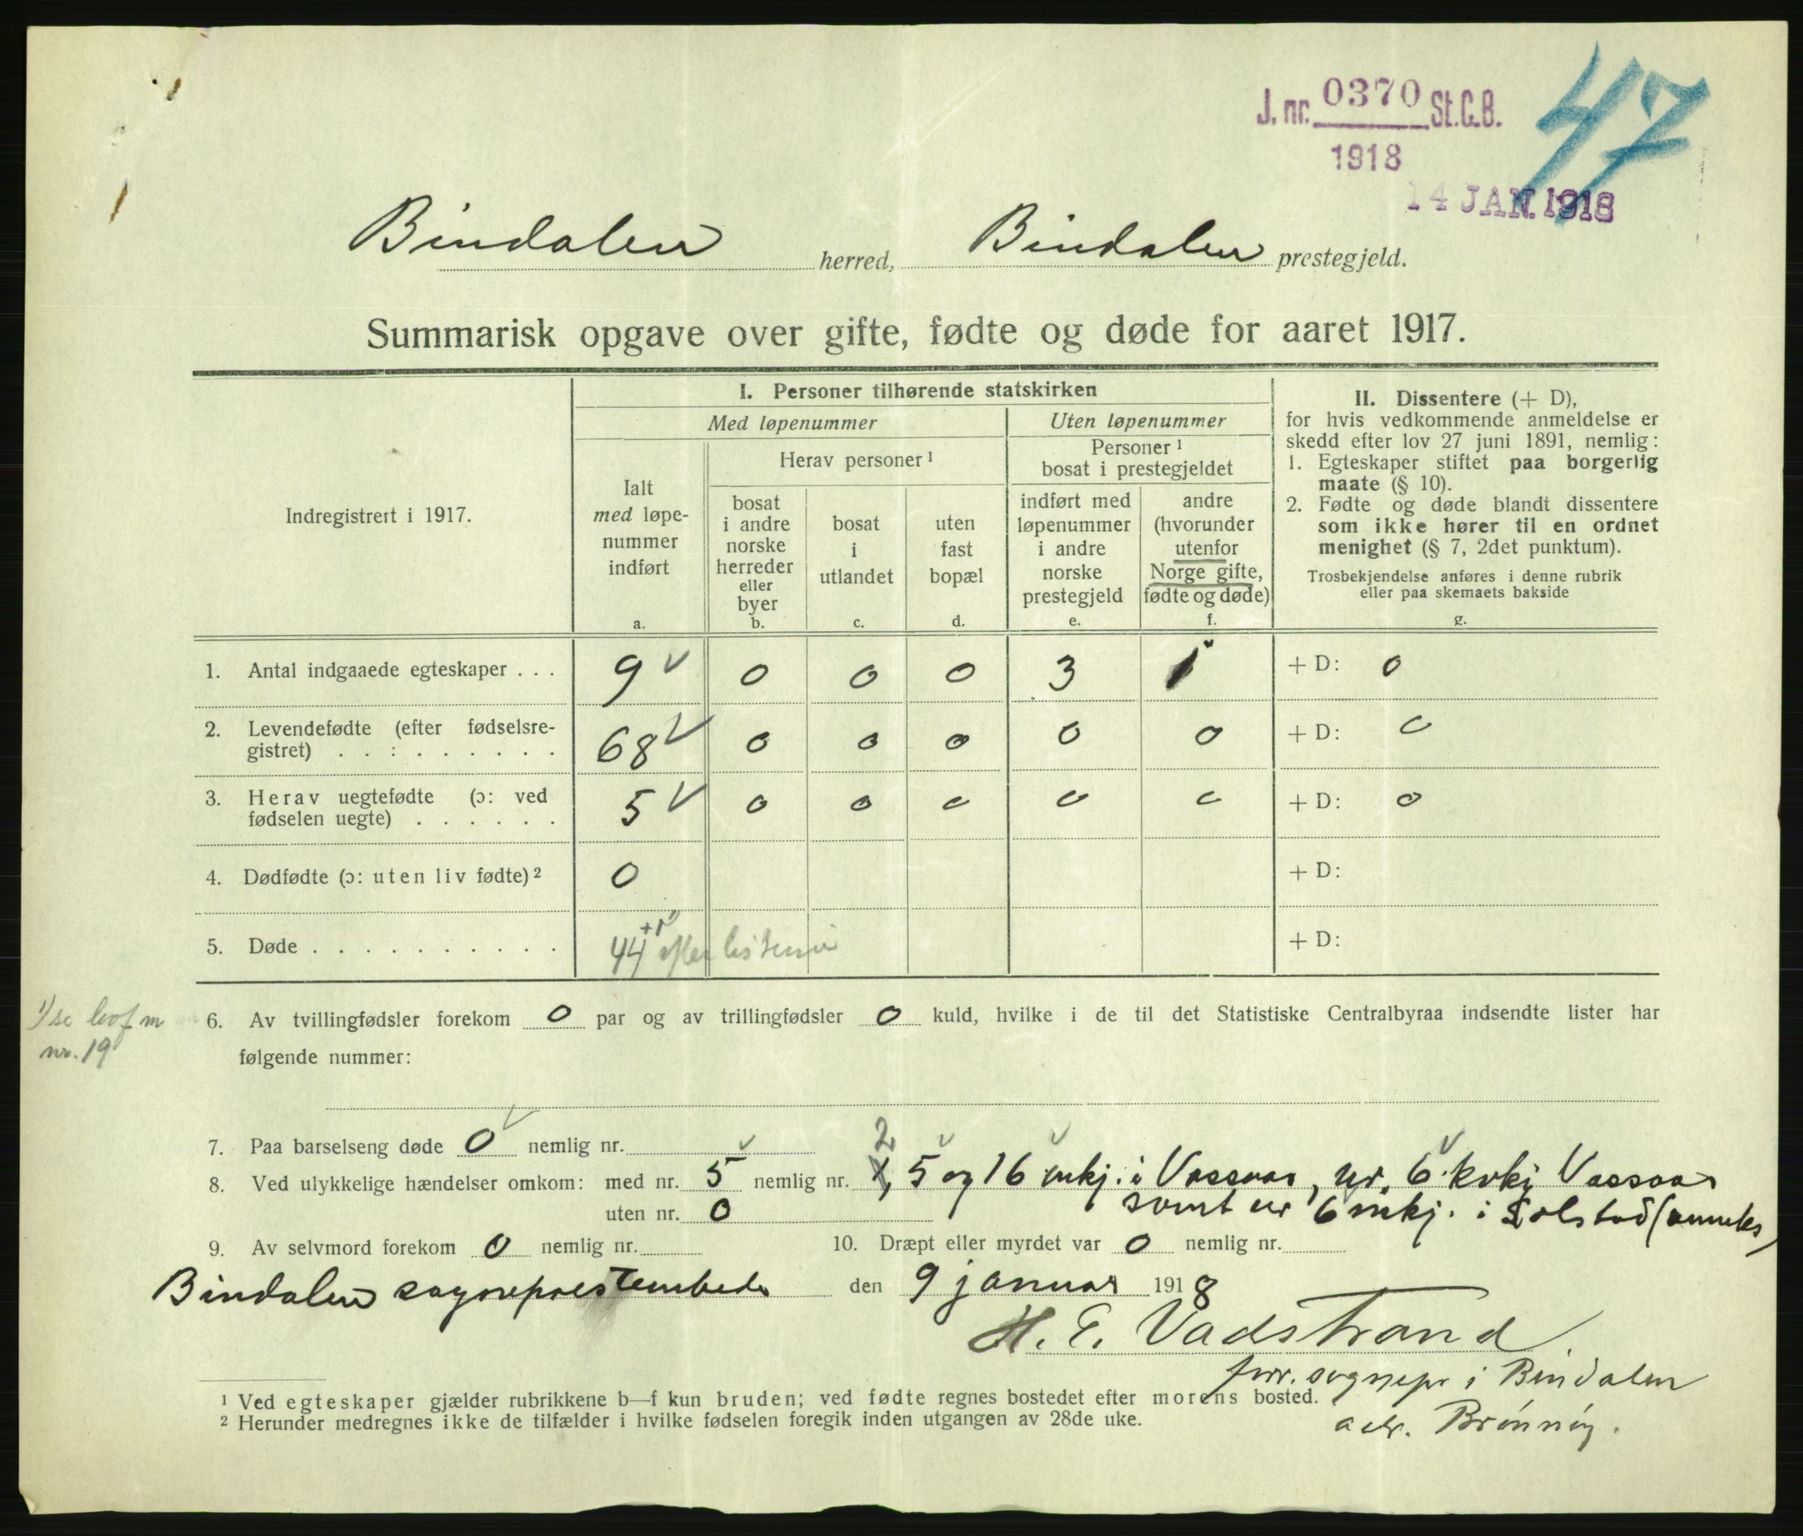 J. nr. 0370 St.C.B.
1918
47
14 JAN. 1918
Bindalen herred, Bindalen prestegjeld.
Summarisk opgave over gifte, fødte og døde for aaret 1917.
Indregistrert i 1917.
I. Personer tilhørende statskirken
Med løpenummer
Uten løpenummer
Herav personer¹
Personer¹
bosat i prestegjeldet
Ialt
med løpe-
nummer
indført
a.
bosat
i andre
norske
herreder
eller
byer
b.
bosat
i
utlandet
c.
uten
fast
bopæl
d.
indført med
løpenummer
i andre
norske
prestegjeld
e.
andre
(hvorunder
utenfor
Norge gifte,
fødte og døde)
f.
II. Dissentere (+ D),
for hvis vedkommende anmeldelse er
skedd efter lov 27 juni 1891, nemlig:
1. Egteskaper stiftet paa borgerlig
maate (§ 10).
2. Fødte og døde blandt dissentere
som ikke hører til en ordnet
menighet (§ 7, 2det punktum).
Trosbekjendelse anføres i denne rubrik
eller paa skemaets bakside
g.
1. Antal indgaaede egteskaper . . . 9 0 0 0 3 1 + D: 0
2. Levendefødte (efter fødselsre-
gistret) . . : . . . . . . 68 0 0 0 0 0 + D: 0
3. Herav uegtefødte (ɔ: ved
fødselen uegte) . . . . . . 5 0 0 0 0 0 + D: 0
4. Dødfødte (ɔ: uten liv fødte)² 0 + D:
5. Døde . . . . . . . . . . 44 +1 efter listerne + D:
nr. 19
6. Av tvillingfødsler forekom 0 par og av trillingfødsler 0 kuld, hvilke i de til det Statistiske Centralbyraa indsendte lister har
følgende nummer:
7. Paa barselseng døde 0 nemlig nr.
8. Ved ulykkelige hændelser omkom: med nr. 5 nemlig nr. 2, 5 og 16 mkj. i Vassaas, nr. 6 kvkj Vassaas
uten nr. 0 samt nr 6 mkj. i Solstad (anneks)
9. Av selvmord forekom 0 nemlig nr.
10. Dræpt eller myrdet var 0 nemlig nr.
Bindalen sogneprestembede den 9 januar 1918
H. E. Vadstrand
sognepr i Bindalen
adr. Brønnøy.
¹ Ved egteskaper gjælder rubrikkene b—f kun bruden; ved fødte regnes bostedet efter morens bosted.
² Herunder medregnes ikke de tilfælder i hvilke fødselen foregik inden utgangen av 28de uke.